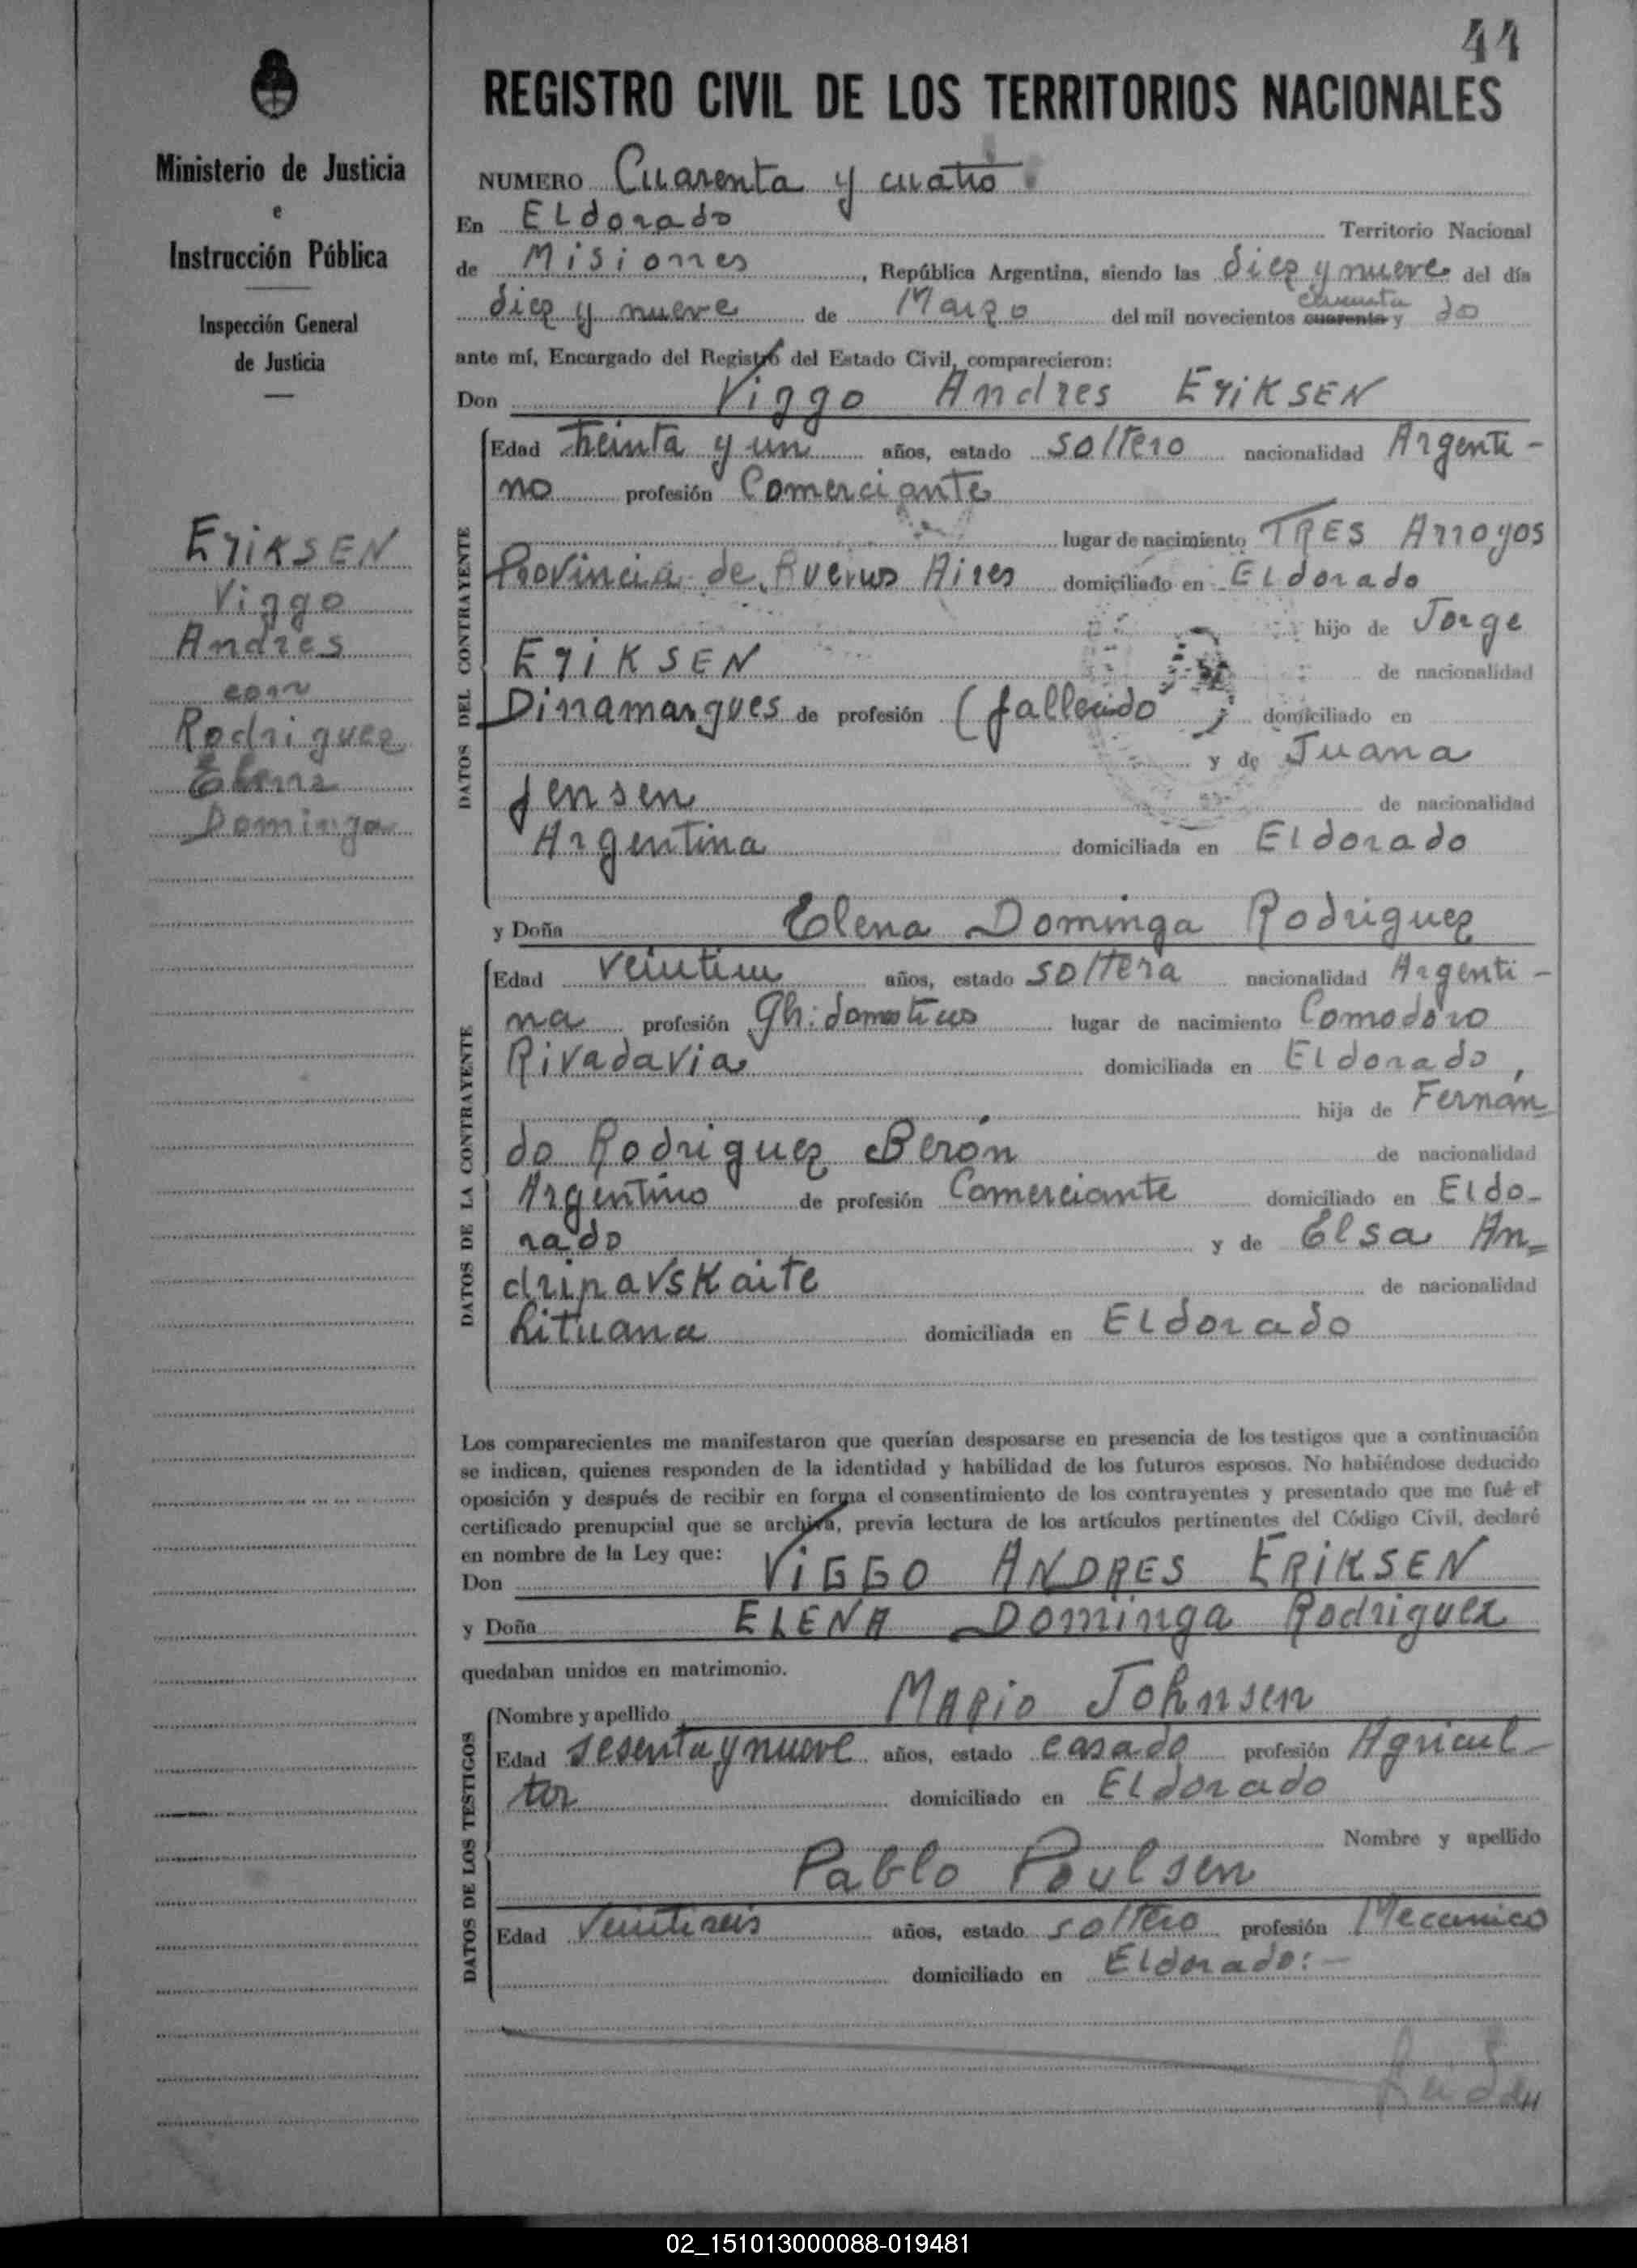 44
Ministerio de Justicia
e
Instrucción Pública
Inspección General
de Justicia
ERIKSEN
Viggo
Andres
con
Rodriguez
Elena
Dominga
REGISTRO CIVIL DE LOS TERRITORIOS NACIONALES
NUMERO Cuarenta y cuatro
En ELdorado Territorio Nacional
de Misiones, República Argentina, siendo las diez y nueve del día
diez y nueve de Marzo del mil novecientos cuarenta y cincuenta do
ante mí, Encargado del Registro del Estado Civil, comparecieron:
Don Viggo Andres ERIKSEN
DATOS DEL CONTRAYENTE
Edad treinta y un años, estado soltero nacionalidad Argenti-
no profesión Comerciante
lugar de nacimiento TRES Arroyos
Provincia de Buenos Aires domiciliado en ELdorado
hijo de Jorge
ERIKSEN de nacionalidad
Dinamarques de profesión (fallecido) domiciliado en
y de Juana
Jensen de nacionalidad
Argentina domiciliada en Eldorado
y Doña Elena Dominga Rodriguez
DATOS DE LA CONTRAYENTE
Edad veintiun años, estado soltera nacionalidad Argenti-
na profesión Qh. domesticos lugar de nacimiento Comodoro
Rivadavia domiciliada en Eldorado,
hija de Fernán
do Rodriguez Berón de nacionalidad
Argentino de profesión Comerciante domiciliado en Eldo-
rado y de Elsa An=
drinavskaite de nacionalidad
Lituana domiciliada en ELdorado
Los comparecientes me manifestaron que querían desposarse en presencia de los testigos que a continuación
se indican, quienes responden de la identidad y habilidad de los futuros esposos. No habiéndose deducido
oposición y después de recibir en forma el consentimiento de los contrayentes y presentado que me fué el
certificado prenupcial que se archiva, previa lectura de los artículos pertinentes del Código Civil, declaré
en nombre de la Ley que:
Don ViGGO ANDRES ERIKSEN
y Doña ELENA Dominga Rodriguez
quedaban unidos en matrimonio.
DATOS DE LOS TESTIGOS
Nombre y apellido MARIO Johnsen
Edad sesenta y nueve años, estado casado profesión Agricul-
tor domiciliado en ELdorado
Nombre y apellido
Pablo Poulsen
Edad Veintiseis años, estado soltero profesión Mecanico
domiciliado en Eldorado:-
02_151013000088-019481